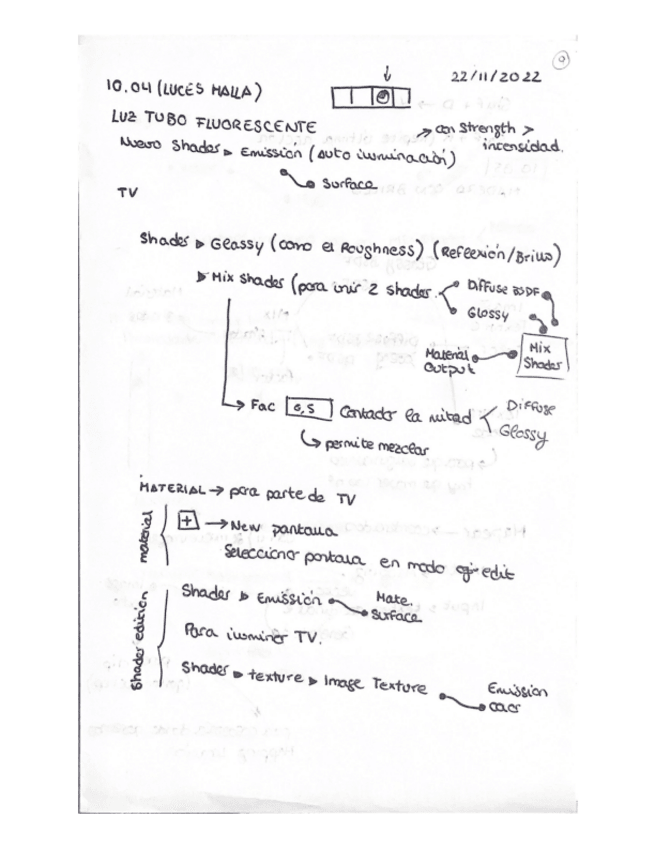 9
22/11/2022
10.04 (LUCES MALLA)
LUZ TUBO FLUORESCENTE
→ con Strength >
intensidad.
Nuevo Shader ▸ Emissión (auto iluminación)
Surface
TV
Shader ▸ Glossy (como el Roughness) (Reflexión/Brillo)
▸ Mix Shader (para unir 2 shader.
Diffuse BSDF
Glossy
Material Output
Mix Shader
→ Fac 0,5 Contado la mitad < Diffuse
Glossy
↳ permite mezclar
MATERIAL → para parte de TV
material
+ → New pantalla
Seleccionar pantalla en modo edit
Shader edition
Shader ▸ Emissión
Mate.
Surface
Para iluminar TV.
Shader ▸ texture ▸ Image Texture
Emission